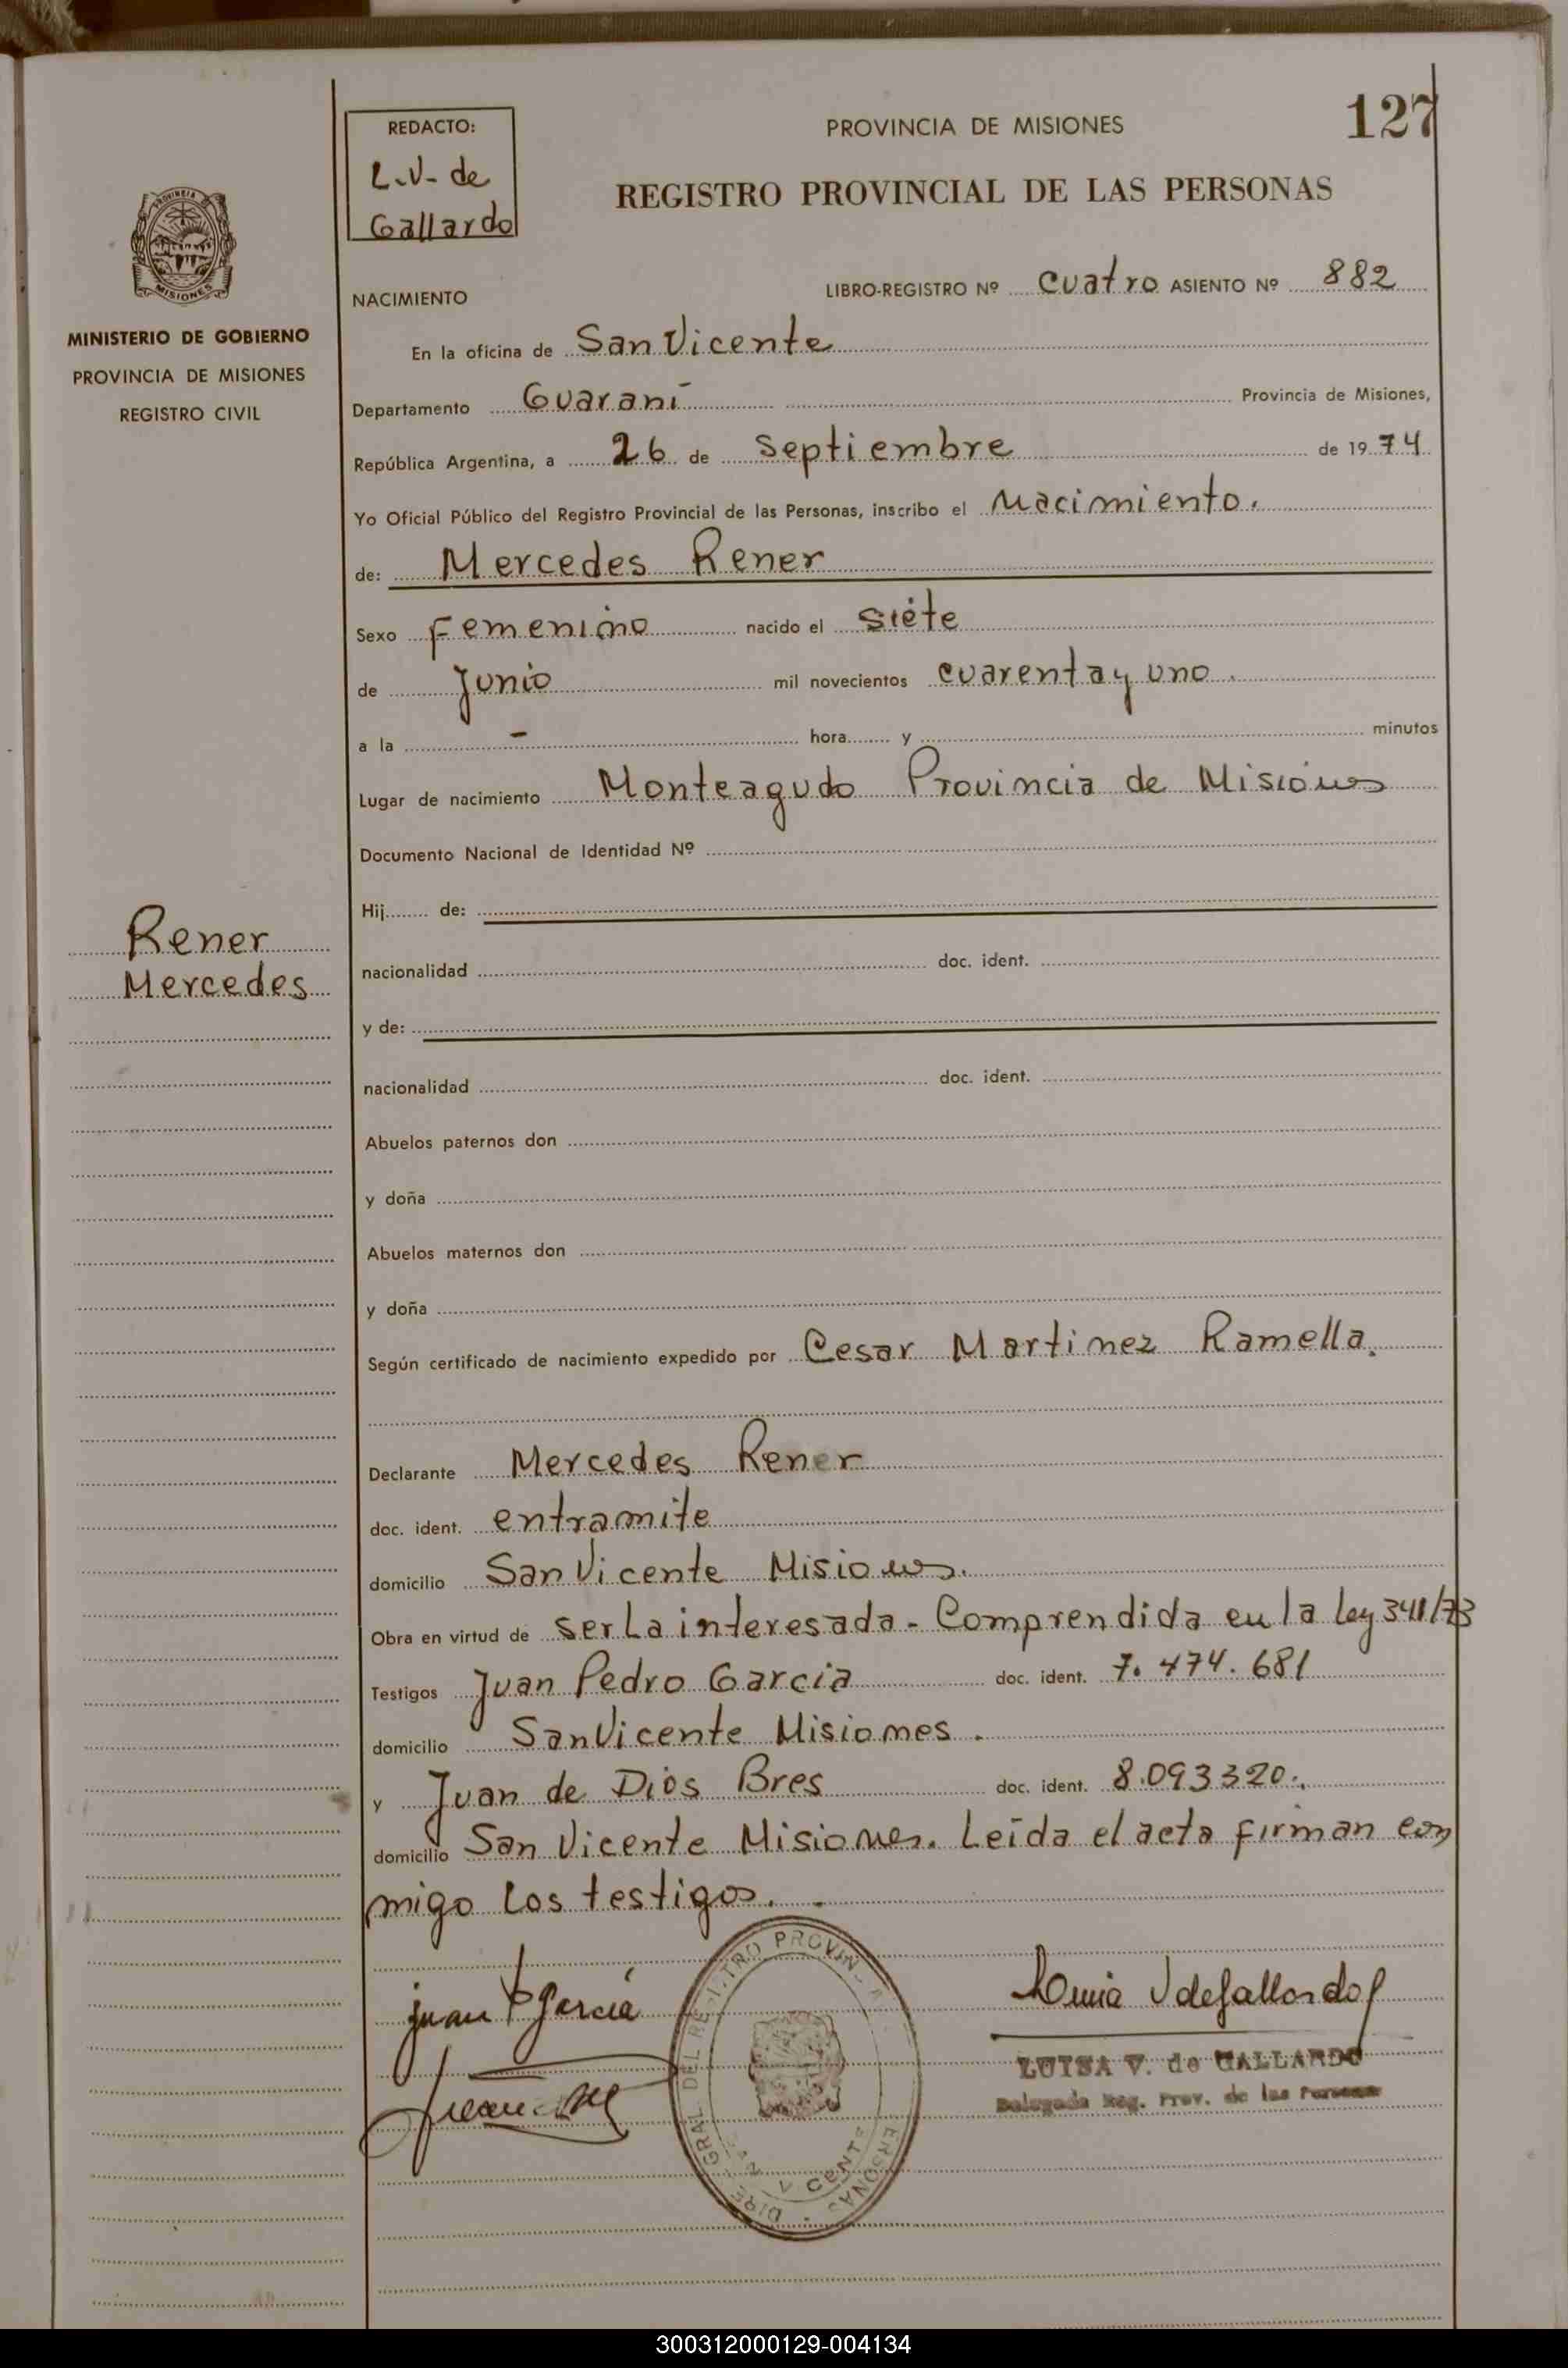 127
REDACTO:
L.V. de
Gallardo
PROVINCIA DE MISIONES
REGISTRO PROVINCIAL DE LAS PERSONAS
MINISTERIO DE GOBIERNO
PROVINCIA DE MISIONES
REGISTRO CIVIL
NACIMIENTO LIBRO-REGISTRO Nº cuatro ASIENTO Nº 882
En la oficina de San Vicente
Departamento Guaraní Provincia de Misiones,
República Argentina, a 26 de Septiembre de 1974
Yo Oficial Público del Registro Provincial de las Personas, inscribo el Nacimiento.
de: Mercedes Rener
Sexo Femenino nacido el Siete
de Junio mil novecientos cuarenta y uno.
a la - hora y minutos
Lugar de nacimiento Monteagudo Provincia de Misiones
Documento Nacional de Identidad Nº
Hij de:
Rener
Mercedes
nacionalidad doc. ident.
y de:
nacionalidad doc. ident.
Abuelos paternos don
y doña
Abuelos maternos don
y doña
Según certificado de nacimiento expedido por Cesar Martinez Ramella.
Declarante Mercedes Rener
doc. ident. entramite
domicilio San Vicente Misiones.
Obra en virtud de ser La interesada - Comprendida en la Ley 341/73
Testigos Juan Pedro Garcia doc. ident. 7.474.681
domicilio San Vicente Misiones.
y Juan de Dios Bres doc. ident. 8.093320.
domicilio San Vicente Misiones. Leída el acta firman con
migo los testigos.
Juan P Garcia
Luisa V de Gallardo
LUISA V. de GALLARDO
Delegada Reg. Prov. de las Personas
300312000129-004134